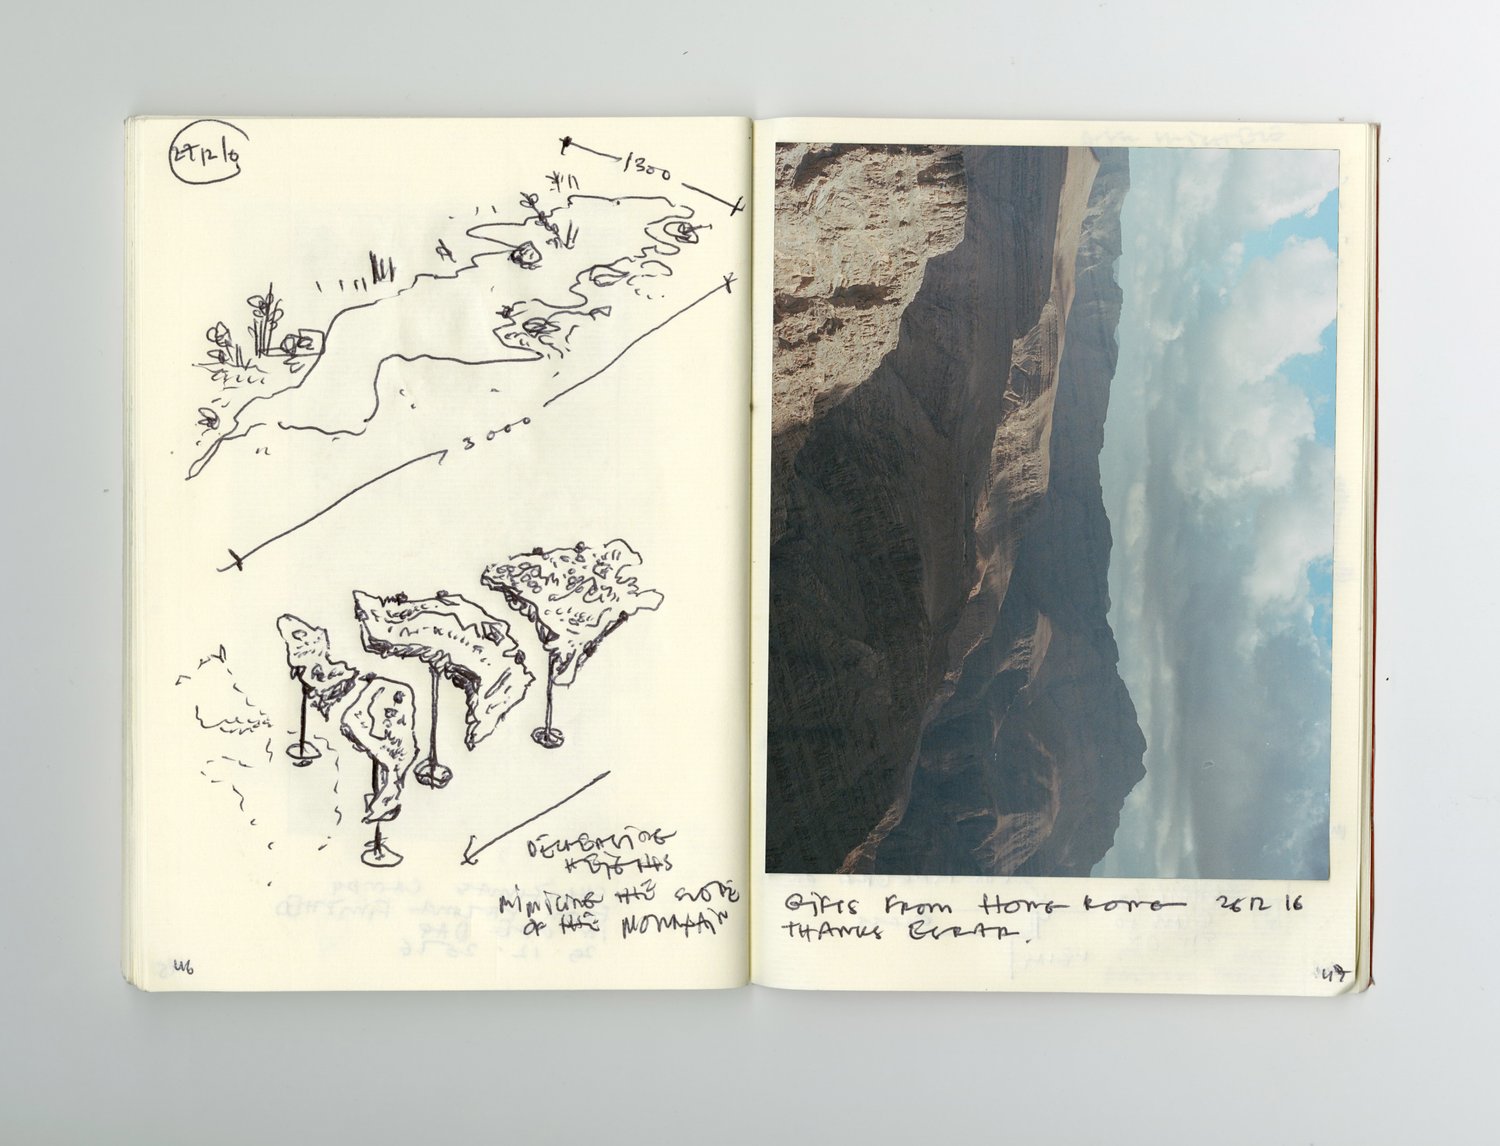 27 12 16
1300
3000
HEIGHTS
MIMICING THE SLOPE
OF THE MOUNTAIN
46
GIFTS FROM HONG KONG 26 12 16
THANKS
47